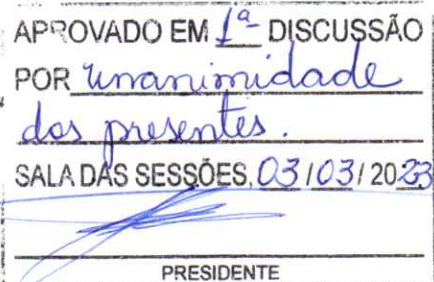 APROVADO EM 1ª DISCUSSÃO
POR unanimidade
dos presentes.
SALA DAS SESSÕES, 03/03/2023
PRESIDENTE